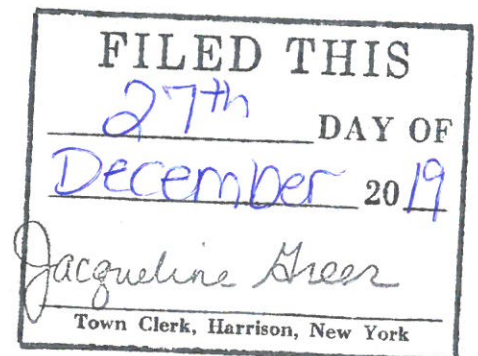 FILED THIS
27th DAY OF
December 2019
Jacqueline Greer
Town Clerk, Harrison, New York